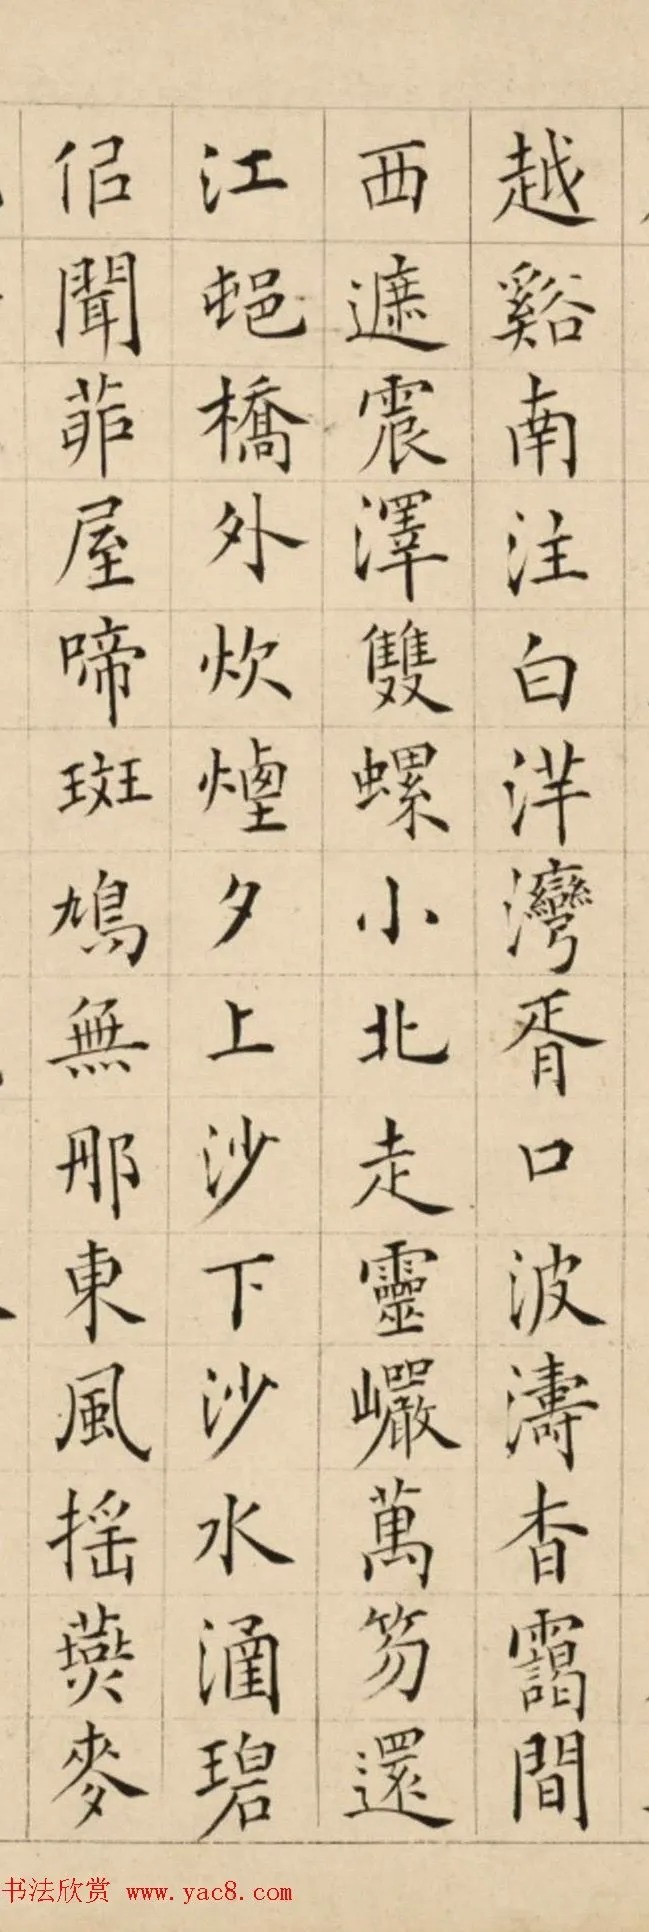 越谿南注白洋灣胥口波濤杳靄間
西遮震澤雙螺小北走靈巖萬笏還
江蜌橋外炊煙夕上沙下沙水涵碧
但聞茆屋啼斑鳩無那東風搖燕麥
书法欣赏 www.yac8.com